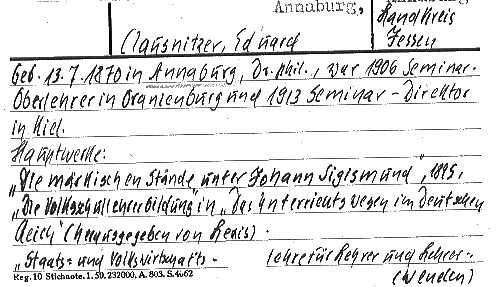 Annaburg, Landkreis
Jessen
Clausnitzer, Eduard
Geb. 13.7.1870 in Annaburg, Dr. phil., war 1906 Seminar-
Oberlehrer in Oranienburg und 1913 Seminar-Direktor
in Kiel.
Hauptwerke:
„Die märkischen Stände" unter Johann Sigismund", 1895.
„Die Volksschullehrerbildung in „Das Unterrichtswesen im Deutschen
Reich" (herausgegeben von Lexis).
„Staats- und Volkswirtschafts- lehre für Lehrer und Lehrer-
Reg. 10 Stichnote. 1. 50. 232000. A. 803. S. 4062 (wenden)